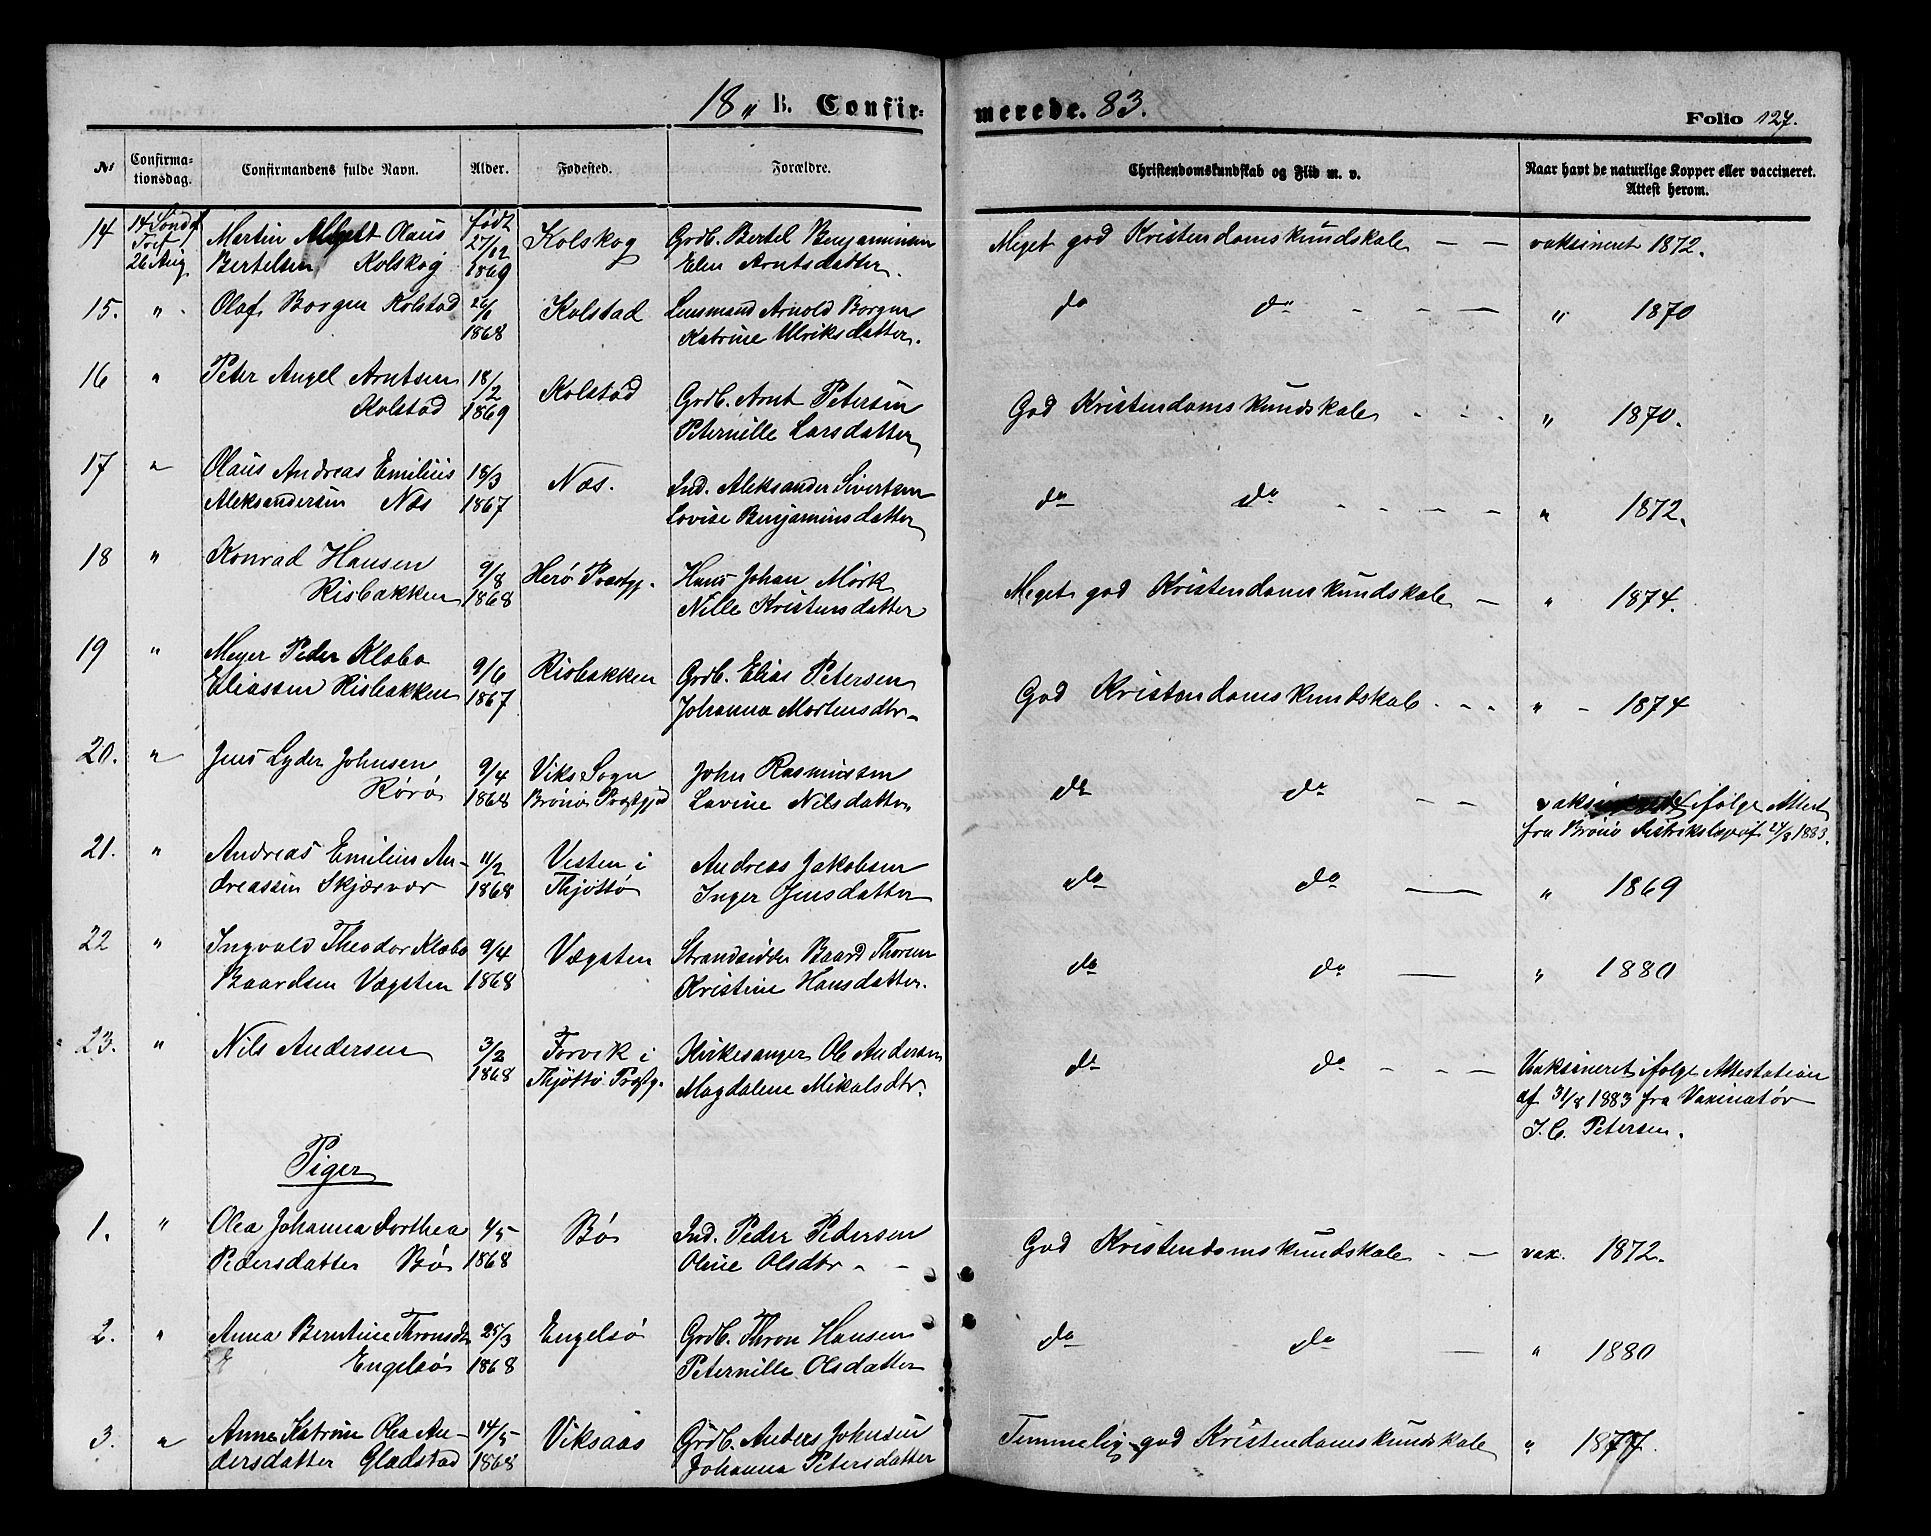 18 " B. Confir- merede. 83.
Folio 127.
Nr Confirma-tionsdag. Confirmandens fulde Navn. Alder. Fødested. Forældre. Christendomskundskab og Flid m. v. Naar havt de naturlige Kopper eller vaccineret. Attest herom.
14 14 Sønd. f Martin Olaus født Kolskog Grdb. Bertel Benjaminsen Meget god Kristendomskundskab — — vaksineret 1872.
Tref. 27/12
26 Aug. Bertelsen Kolskog 1869 Elen Arntsdatter.
15. " Olaf Borgen Kolstad 26/ Kolstad Lensmand Arnold Borgen do do - - — " 1870
1868 Katrine Ulriksdatter.
16 " Peter Angel Arntsen 18/2 Kolstad Grdb. Arnt Petersen God Kristendomskundskab - - - " 1870.
Kolstad 1869 Peternille Larsdatter
17 " Olaus Andreas Emilius 18/3 Næs. Ind. Aleksander Sivertsen do do - - - - " 1872.
Aleksandersen Næs 1867 Lovise Benjaminsdatter
18 " Konrad Hansen 9/8 Herø Præstgj. Hans Johan Mørk Meget god Kristendomskundskab — " 1874.
Risbakken 1868 Nille Kristensdatter
19 " Meyer Peder Klæbo 9/6 Risbakken Grdb. Elias Petersen God Kristendomskundskab - - - " - 1874
Eliassen Risbakken 1867 Johanna Mortensdtr.
20. " Jens Lyder Johnsen 9/4 Viks Sogn John Rasmussen do do - - vaksineret ifølge Attest
Rørø 1868 Brønø Præstgjd Lavine Nilsdatter fra Brønø 24/8 1883.
21. " Andreas Emilius An- 11/2 Vesten i Andreas Jakobsen do do — " 1869
dreassen Skjærvær 1868 Thjøttø Inger Jensdatter
22 " Ingvald Theodor Klæbo 9/4 Vægsten Strandsidder Baard Thorsen do do — " 1880
Baardsen Vægsten 1868 Kristine Hansdatter.
23. " Nils Andersen 3/2 Forvik i Kirkesanger Ole Andersen do do - - - Vaksineret ifølge Attestation
1868 Thjøttø Præstg. Magdalene Mikalsdtr. af 31/8 1883 fra Vaxinatør
J. C. Petersen.
Piger
1. " Olea Johanna Dorthea 4/5 Bø Ind. Peder Pedersen God Kristendomskundskab - — vax. 1872.
Pedersdatter Bø 1868 Oline Olsdtr - -
2. " Anna Berntine Thronsdtr 25/3 Engelsø Grdb. Thron Hansen do do — " 1880
Engelsø 1868 Peternille Olsdatter
3. " Anne Katrine Olea An- 14/5 Viksaas Grdb. Anders Johnsen Temmelig god Kristendomskundskab " 1877.
dersdatter Gladstad 1868 Johanna Petersdatter